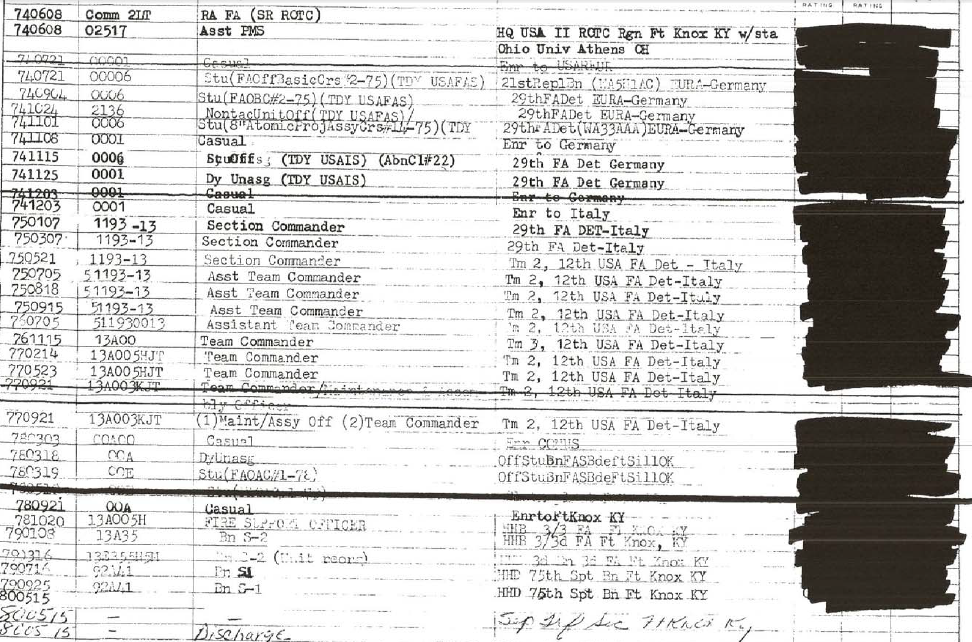 RATING RATING
740608 Comm 2LT RA FA (SR ROTC)
740608 02517 Asst PMS HQ USA II ROTC Rgn Ft Knox KY w/sta
Ohio Univ Athens OH
740721 00001 Casual Enr to USAREUR
740721 00006 Stu(FAOffBasicCrs#2-75)(TDY USAFAS) 21stReplBn EURA-Germany
740904 0006 Stu(FAOBC#2-75)(TDY USAFAS) 29thFADet EURA-Germany
741024 2136 NontacUnitOff(TDY USAFAS)/ 29thFADet EURA-Germany
741101 0006 Stu(8"AtomicProjAssyCrs#14-75)(TDY 29thFADet(WA33AAA)EURA-Germany
741108 0001 Casual Enr to Germany
741115 0006 (TDY USAIS) (AbnCl#22) 29th FA Det Germany
741125 0001 Dy Unasg (TDY USAIS) 29th FA Det Germany
741203 0001 Casual Enr to Germany
741203 0001 Casual Enr to Italy
750107 1193-13 Section Commander 29th FA DET-Italy
750307 1193-13 Section Commander 29th FA Det-Italy
750521 1193-13 Section Commander Tm 2, 12th USA FA Det - Italy
750705 51193-13 Asst Team Commander Tm 2, 12th USA FA Det-Italy
750818 51193-13 Asst Team Commander Tm 2, 12th USA FA Det-Italy
750915 51193-13 Asst Team Commander Tm 2, 12th USA FA Det-Italy
760705 511930013 Assistant Team Commander Tm 2, 12th USA FA Det-Italy
761115 13A00 Team Commander Tm 3, 12th USA FA Det-Italy
770214 13A005HJT Team Commander Tm 2, 12th USA FA Det-Italy
770523 13A005HJT Team Commander Tm 2, 12th USA FA Det-Italy
770921 13A003KJT Team Commander/Maintenance & Assem- Tm 2, 12th USA FA Det Italy
bly Officer
770921 13A003KJT (1)Maint/Assy Off (2)Team Commander Tm 2, 12th USA FA Det-Italy
780303 00A00 Casual Enr CONUS
780318 00A DyUnasg OffStuBnFASBdeftSillOK
780319 00E Stu(FAOAC#1-78) OffStuBnFASBdeftSillOK
780921 00A Casual EnrtoFtKnox KY
781020 13A005H FIRE SUPPORT OFFICER HHB 3/3 FA Ft KNOX KY
790108 13A35 Bn S-2 HHB 3/3d FA Ft Knox, KY
790316 Bn S-2 (Unit reorg) 3d Bn 3d FA Ft Knox KY
790716 92A41 Bn S1 HHD 75th Spt Bn Ft Knox KY
790925 92A41 Bn S-1 HHD 75th Spt Bn Ft Knox KY
800515
800515 - - Sep Trf Sec Ft Knox Ky
800515 - Discharge